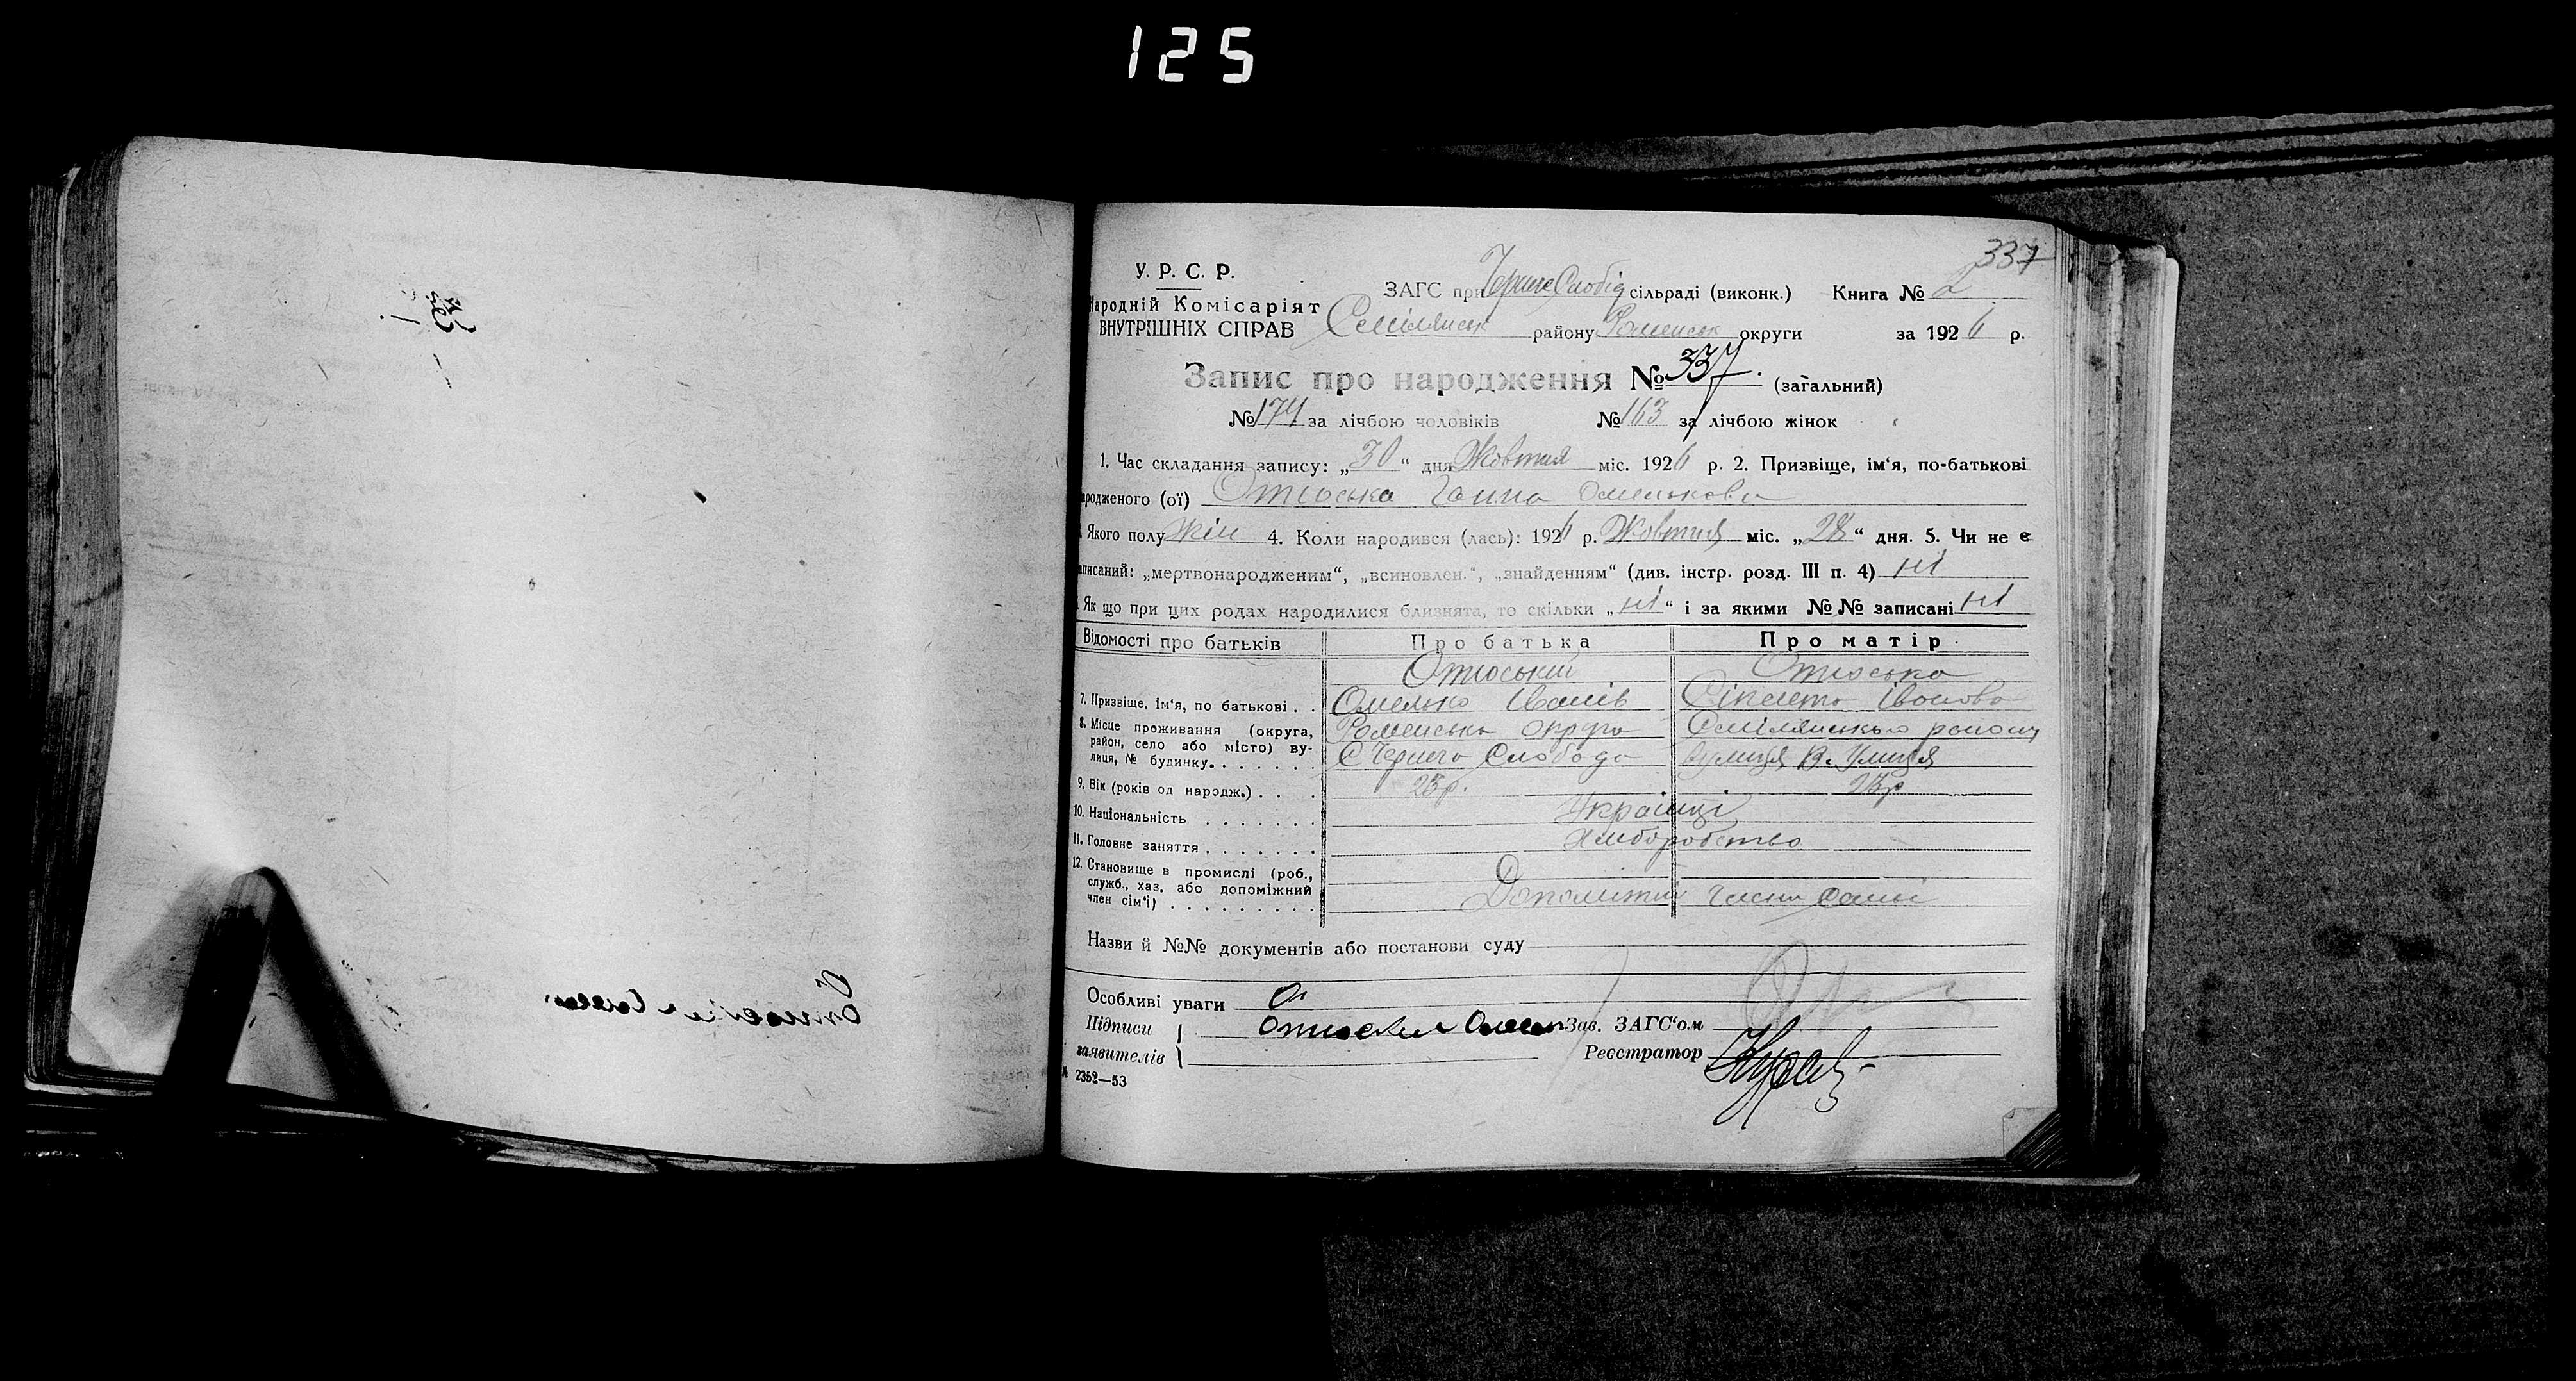 125
337
У. Р. С. Р.
Народній Комісаріят
ВНУТРІШНІХ СПРАВ
ЗАГС при Черне Слобід сільраді (виконк.) Книга № 2
Смілянськ району Роменськ округи за 1926 р.
Запис про народження № 337. (загальний)
№ 174 за лічбою чоловіків № 163 за лічбою жінок
1. Час складання запису: „30“ дня Жовтня міс. 1926 р. 2. Призвіще, ім‘я, по-батькові
ародженого (ої) Отюська Ганна Омелькова
Якого полу жін 4. Коли народився (лась): 1926 р. Жовтня міс. „28“ дня. 5. Чи не є
аписаний: „мертвонародженим“, „всиновлен.“, „знайденням“ (див. інстр. розд. III п. 4) ні
Як що при цих родах народилися близнята, то скільки „ні“ і за якими №№ записані ні
Відомості про батьків Про батька Про матір
Отюський Отюська
7. Призвіще, ім‘я, по батькові . . Омелько Іванів Іванова
8. Місце проживання (округа, Роменська округа Смілянського району
район, село або місто) ву- С Черняча Слобода вулиця В. Улиця
лиця, № будинку. . . . . . .
9. Вік (років од народж.) . . . 25р. 25р
10. Національність . . . . . . . Українці
11. Головне заняття . . . . . . . Хліборобство
12. Становище в промислі (роб.,
служб., хаз. або допоміжний
член сім‘ї) . . . . . . . . . Допоміжні члени
Назви й №№ документів або постанови суду
Особливі уваги
Підписи Отюский Омел Зав. ЗАГС‘ом
заявителів Реєстратор
№ 2352—53